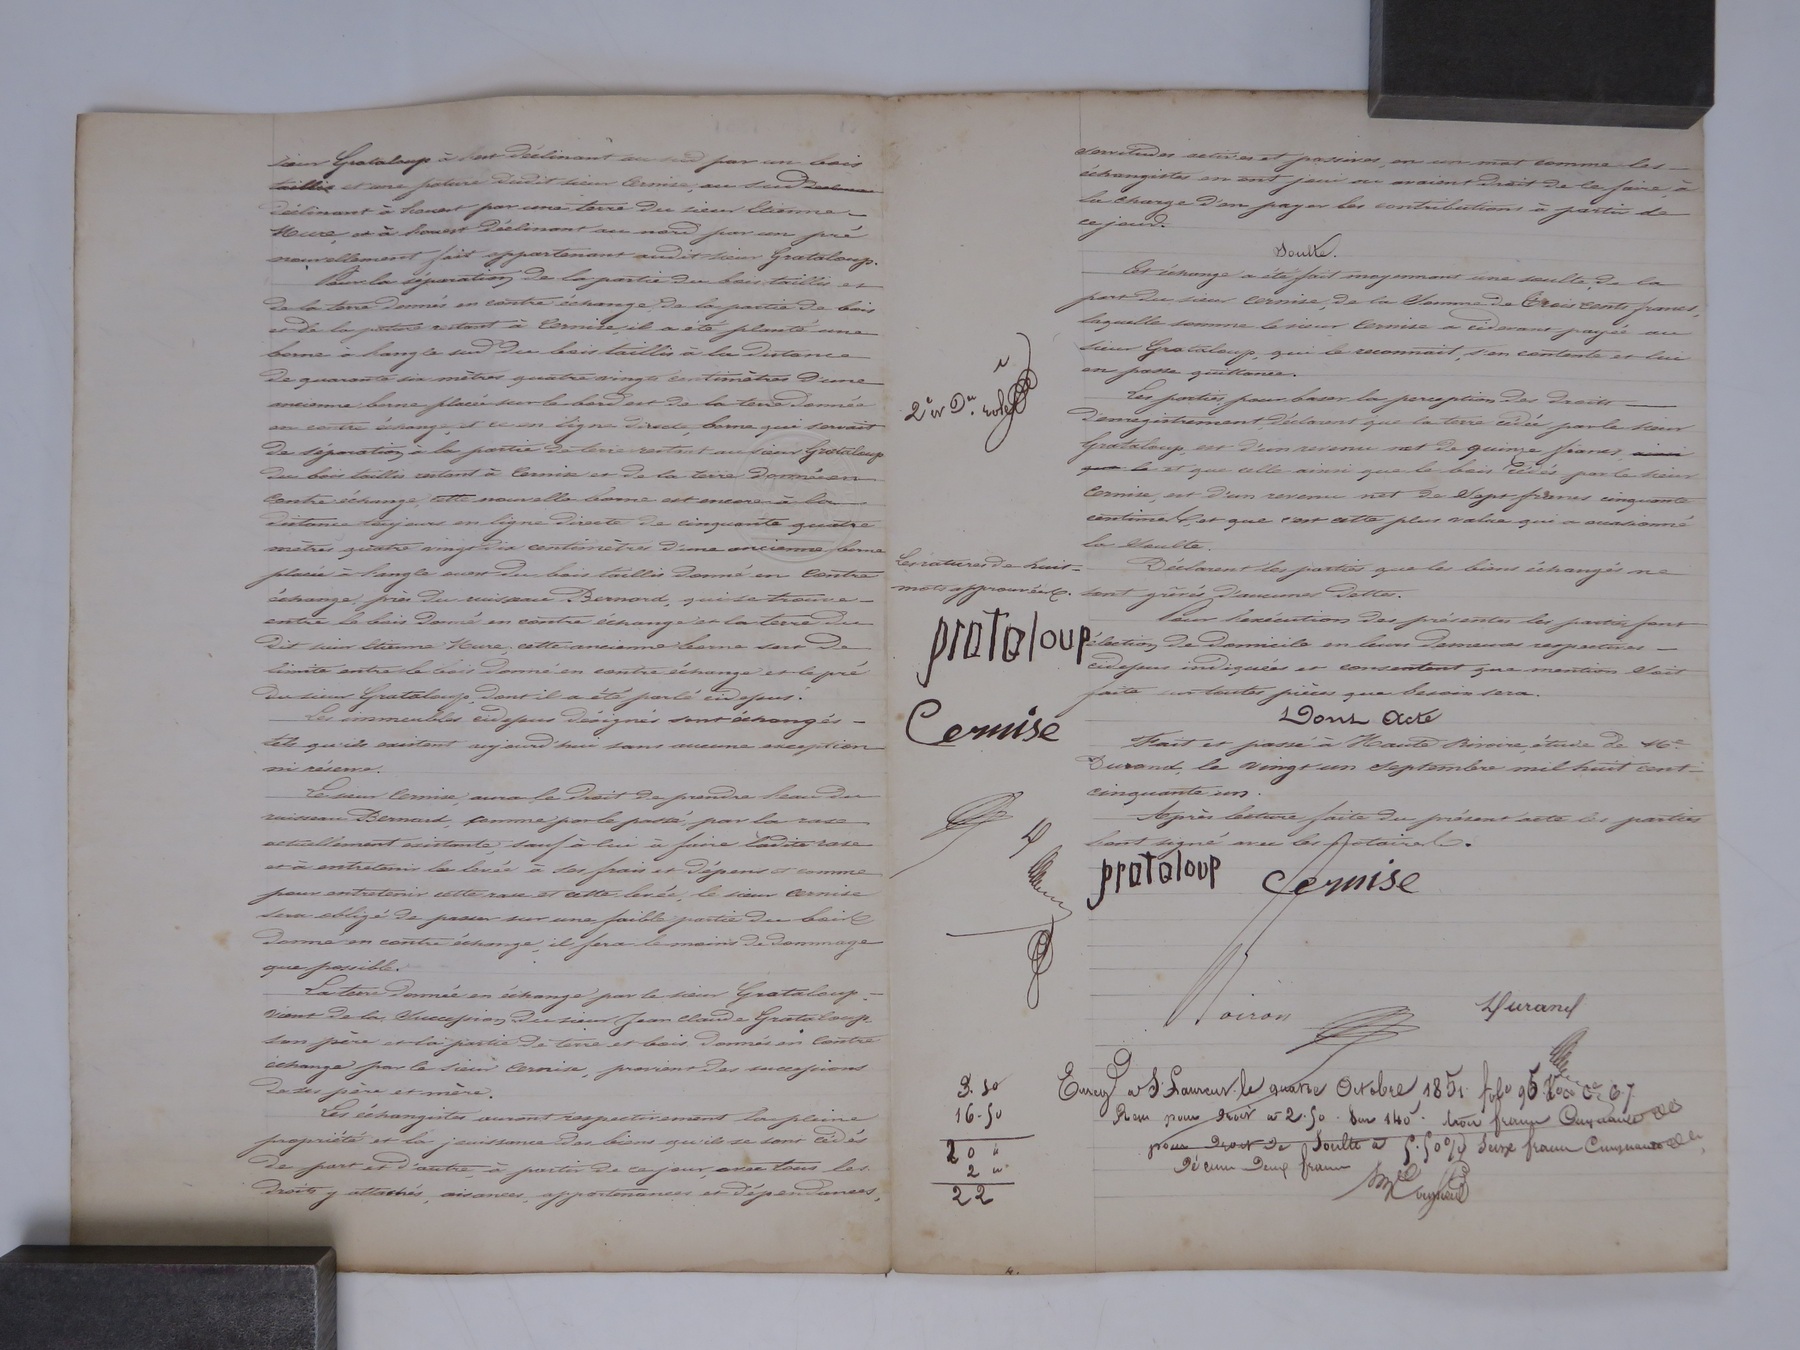 sieur Grataloup à l'est déclinant au sud par un bois
taillis et une pature dudit sieur Cernise, au sud
déclinant à l'ouest par une terre du sieur Etienne
Mure, et à l'ouest déclinant au nord par un pré
nouvellement fait appartenant audit sieur Grataloup.
Pour la séparation de la partie du bois taillis et
de la terre donnés en contre échange de la partie de bois
et de la pature restant à Cernise, il a été planté une
borne à l'angle sud du bois taillis à la distance
de quarante six mètres quatre vingts centimètres d'une
ancienne borne placée sur le bord est de la terre donnée
en contre échange, et ce en ligne directe, borne qui servait
de séparation à la partie de terre restant au sieur Grataloup
du bois taillis restant à Cernise et de la terre donnée en
contre échange, cette nouvelle borne est encore à la
distance toujours en ligne directe de cinquante quatre
mètres quatre vingt dix centimètres d'une ancienne borne
placée à l'angle ouest du bois taillis donné en contre
échange, près du ruisseau Bernard, qui se trouve
entre le bois donné en contre échange et la terre du
dit sieur Etienne Mure, cette ancienne borne sert de
limite entre le bois donné en contre échange et le pré
du sieur Grataloup, dont il a été parlé cidessus.
Les immeubles cidessus désignés sont échangés
tels qu'ils existent aujourd'hui sans aucune exception
ni réserve.
Le sieur Cernise, aura le droit de prendre l'eau du
ruisseau Bernard, comme par le passé, par la rase
actuellement existante, sauf à lui à faire ladite rase
et à entretenir la levée à ses frais et dépens et comme
pour entretenir cette rase et cette levée, le sieur Cernise
sera obligé de passer sur une faible partie du bois
donné en contre échange, il fera le moins de dommage
que possible.
La terre donnée en échange par le sieur Grataloup
vient de la succession du sieur Jean Claude Grataloup
son père et la partie de terre et bois donnés en contre
échange par le sieur Cernise, provient des successions
de ses père et mère.
Les échangistes auront respectivement la pleine
propriété et la jouissance des biens qu'ils se sont cédés
de part et d'autre, à partir de ce jour, avec tous les
droits y attachés, aisances, appartenances et dépendances,
2e et Der role
Les ratures de huit
mots approuvées.
grataloup
Cernise
servitudes actives et passives, en un mot comme les
échangistes en ont joui ou avaient droit de le faire, à
la charge d'en payer les contributions à partir de
ce jour.
Soulte.
Cet échange a été fait moyennant une soulte, de la
part du sieur Cernise, de la somme de trois cents francs,
laquelle somme le sieur Cernise a cidevant payée au
sieur Grataloup, qui le reconnait, s'en contente et lui
en passe quittance.
Les parties pour baser la perception des droits
d'enregistrement déclarent que la terre cédée par le sieur
Grataloup, est d'un revenu net de quinze francs, ainsi
que le et que celle ainsi que le bois cédés par le sieur
Cernise, est d'un revenu net de sept francs cinquante
centimes, et que c'est cette plus value qui a occasionné
la soulte.
Déclarent les parties que les biens échangés ne
sont grévés d'aucunes dettes.
Pour l'exécution des présentes les parties font
élection de domicile en leurs demeures respectives
cidessus indiquées et consentent que mention soit
faite sur toutes pièces que besoin sera.
Dont Acte
Fait et passé à Haute Rivoire, étude de Me
Durand, le vingt un septembre mil huit cent
cinquante un.
Après lecture faite du présent acte les parties
l'ont signé avec les Notaires.
grataloup Cernise
Voiron
Durand
3.50
16.50
20 "
2 "
22
Enreg à St Laurent le quatre Octobre 1851 folo 95 Vo Ce 67
Reçu pour droit à 2.50 Sur 140 trois francs Cinquante
pour Droit de Soulte à 5.50% Seize francs Cinquante
Décime Deux francs